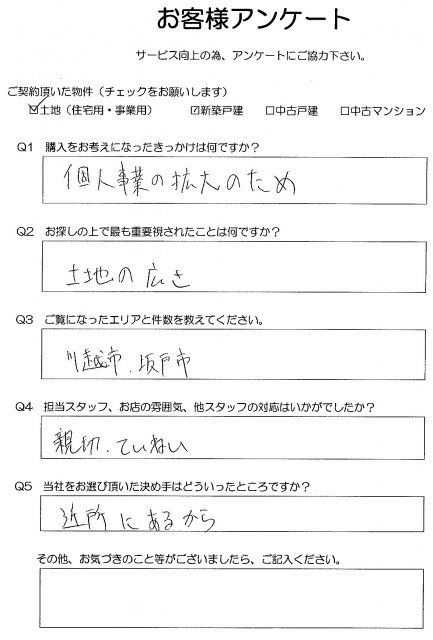 お客様アンケート
サービス向上の為、アンケートにご協力下さい。
ご契約頂いた物件（チェックをお願いします）
☑土地（住宅用・事業用） ☑新築戸建 □中古戸建 □中古マンション
Q1 購入をお考えになったきっかけは何ですか？
個人事業の拡大のため
Q2 お探しの上で最も重要視されたことは何ですか？
土地の広さ
Q3 ご覧になったエリアと件数を教えてください。
川越市、坂戸市
Q4 担当スタッフ、お店の雰囲気、他スタッフの対応はいかがでしたか？
親切、ていねい
Q5 当社をお選び頂いた決め手はどういったところですか？
近所にあるから
その他、お気づきのこと等がございましたら、ご記入ください。